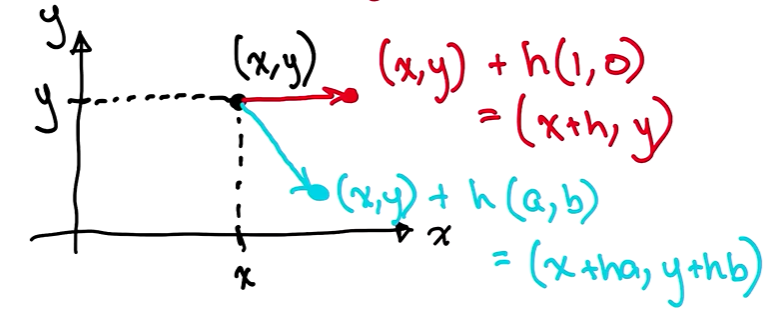 y
(x,y)
(x,y) + h(1,0)
= (x+h, y)
y
(x,y) + h(a,b)
= (x+ha, y+hb)
x
x